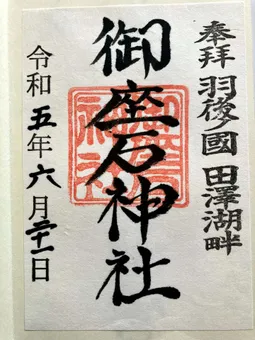 奉拝 羽後國 田澤湖畔
御座石神社
令和五年六月二十一日